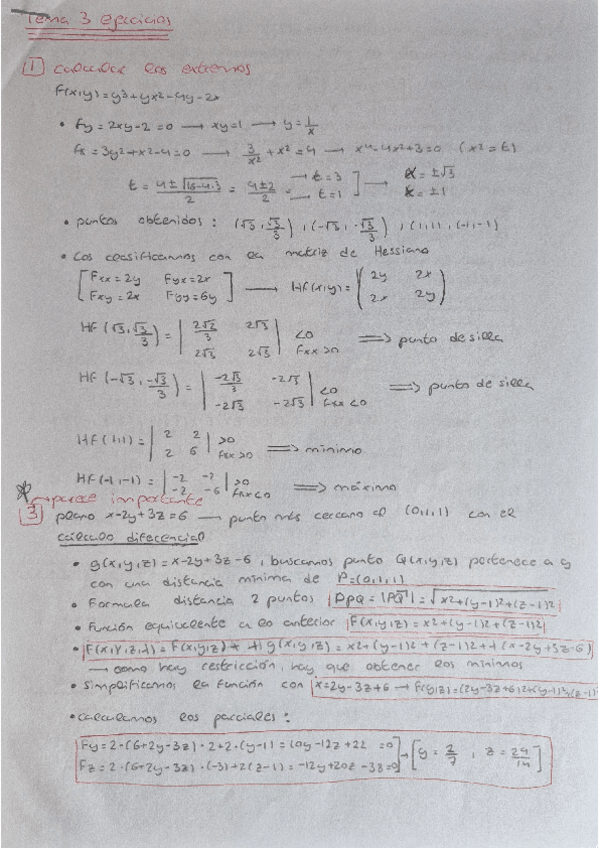 Tema 3 ejercicios
1 calcular los extremos
F(x,y)=y3+yx2-4y-2x
• Fy=2xy-2=0 → xy=1 → y=1/x
Fx=3y2+x2-4=0 → 3/x2+x2=4 → x4-4x2+3=0 (x2=t)
t=4±√16-4·3/2=4±2/2= → t=3 → t=1 → x=±√3 x=±1
• puntos obtenidos: (√3,√3/3),(-√3,-√3/3),(1,1),(-1,-1)
• Los clasificamos con la matriz de Hessiano
[Fxx=2y Fyx=2x
Fxy=2x Fyy=6y] → HF(x,y)=(2y 2x
2x 2y)
HF(√3,√3/3)=|2√3/3 2√3
2√3 2√3| <0 Fxx>0 ⟹ punto de silla
HF(-√3,-√3/3)=|-2√3/3 -2√3
-2√3 -2√3| <0 Fxx<0 ⟹ punto de silla
HF(1,1)=|2 2
2 6| >0 Fxx>0 ⟹ mínimo
HF(-1,-1)=|-2 -2
-2 -6| >0 Fxx<0 ⟹ máximo
* → parece importante
3 plano x-2y+3z=6 → punto más cercano al (0,1,1) con el
cálculo diferencial
• g(x,y,z)=x-2y+3z-6, buscamos punto Q(x,y,z) pertenece a g
con una distancia mínima de P=(0,1,1)
• Formula distancia 2 puntos DPQ=|PQ|=√x2+(y-1)2+(z-1)2
• Función equivalente a lo anterior F(x,y,z)=x2+(y-1)2+(z-1)2
• F(x,y,z,λ)=F(x,y,z)+λg(x,y,z)=x2+(y-1)2+(z-1)2+λ(x-2y+3z-6)
→ como hay restricción, hay que obtener los mínimos
• Simplificamos la función con x=2y-3z+6 → F(y,z)=(2y-3z+6)2+(y-1)2+(z-1)2
• calculamos los parciales:
Fy=2·(6+2y-3z)·2+2·(y-1)=10y-12z+22=0
Fz=2·(6+2y-3z)·(-3)+2(z-1)=-12y+20z-38=0 → [y=2/7, z=29/14]